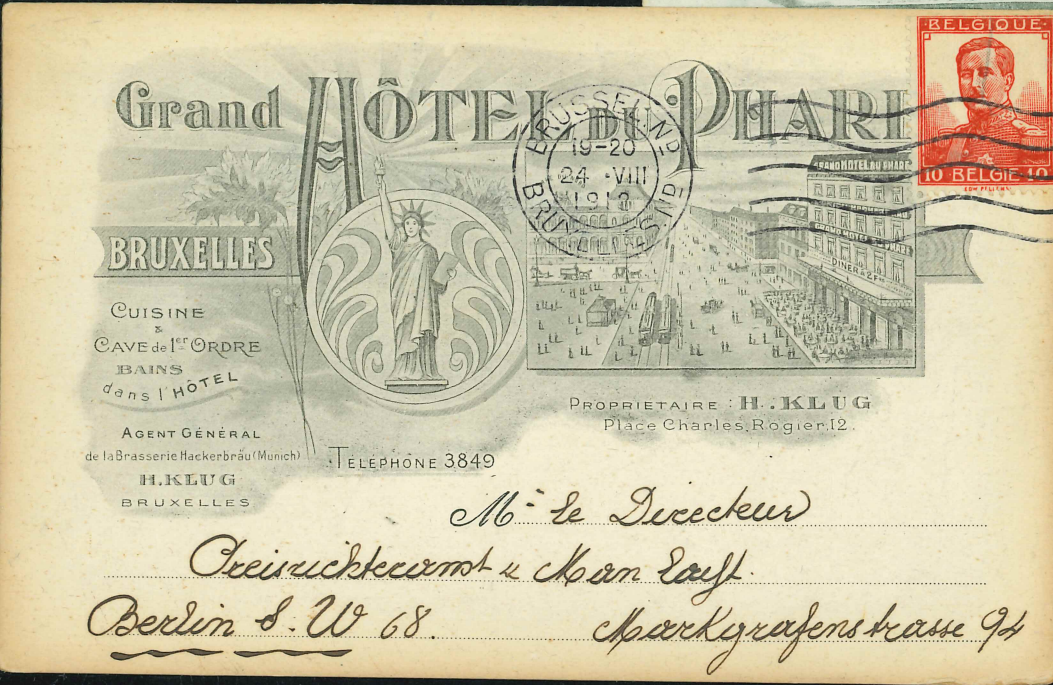 BELGIQUE
10 BELGIË 10
Grand HÔTEL DU PHARE
BRUSSEL
19-20
24 VIII
BRUXELLES
GRAND HOTEL DU PHARE
GRAND HOTEL DU PHARE
DINER à 2 Frs
BRUXELLES
CUISINE
&
CAVE de 1er ORDRE
BAINS
dans l'HÔTEL
AGENT GÉNÉRAL
de la Brasserie Hackerbräu (Munich)
H. KLUG
BRUXELLES
PROPRIETAIRE : H. KLUG
Place Charles, Rogier, 12.
TÉLÉPHONE 3849
Mr le Directeur
Preisrichteramt u Man
Berlin S. W 68. Markgrafenstrasse 94